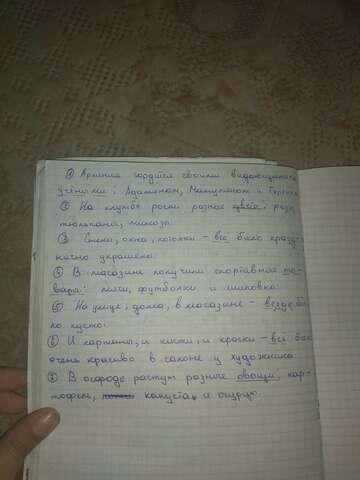 ① Армения гордится своими выдающимися
учёными: Адамяном, Мамиляном и
② На клумбе росли разные цветы: розы,
тюльпаны, мимоза.
③ Стены, окна, потолки – всё было празд-
нично украшено.
④ В магазине получили спортивные то-
вары: лыжи, футболки и шиповки.
⑤ На улице, дома, в магазине – везде бы-
ло пусто.
⑥ И картины, и кисти, и краски – всё было
очень красиво в салоне у художника.
⑦ В огороде растут разные овощи, кар-
тофель, капуста и огурцы.